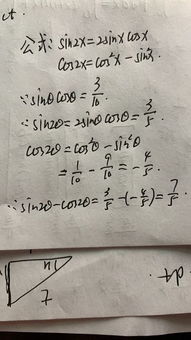 公式: sin2x=2sinx cosx
cos2x=cos²x-sin²x
∵sinθcosθ=3/10
∴sin2θ=2sinθcosθ=3/5
cos2θ=cos²θ-sin²θ
=1/10-9/10=-4/5
∴sin2θ-cos2θ=3/5-(-4/5)=7/5